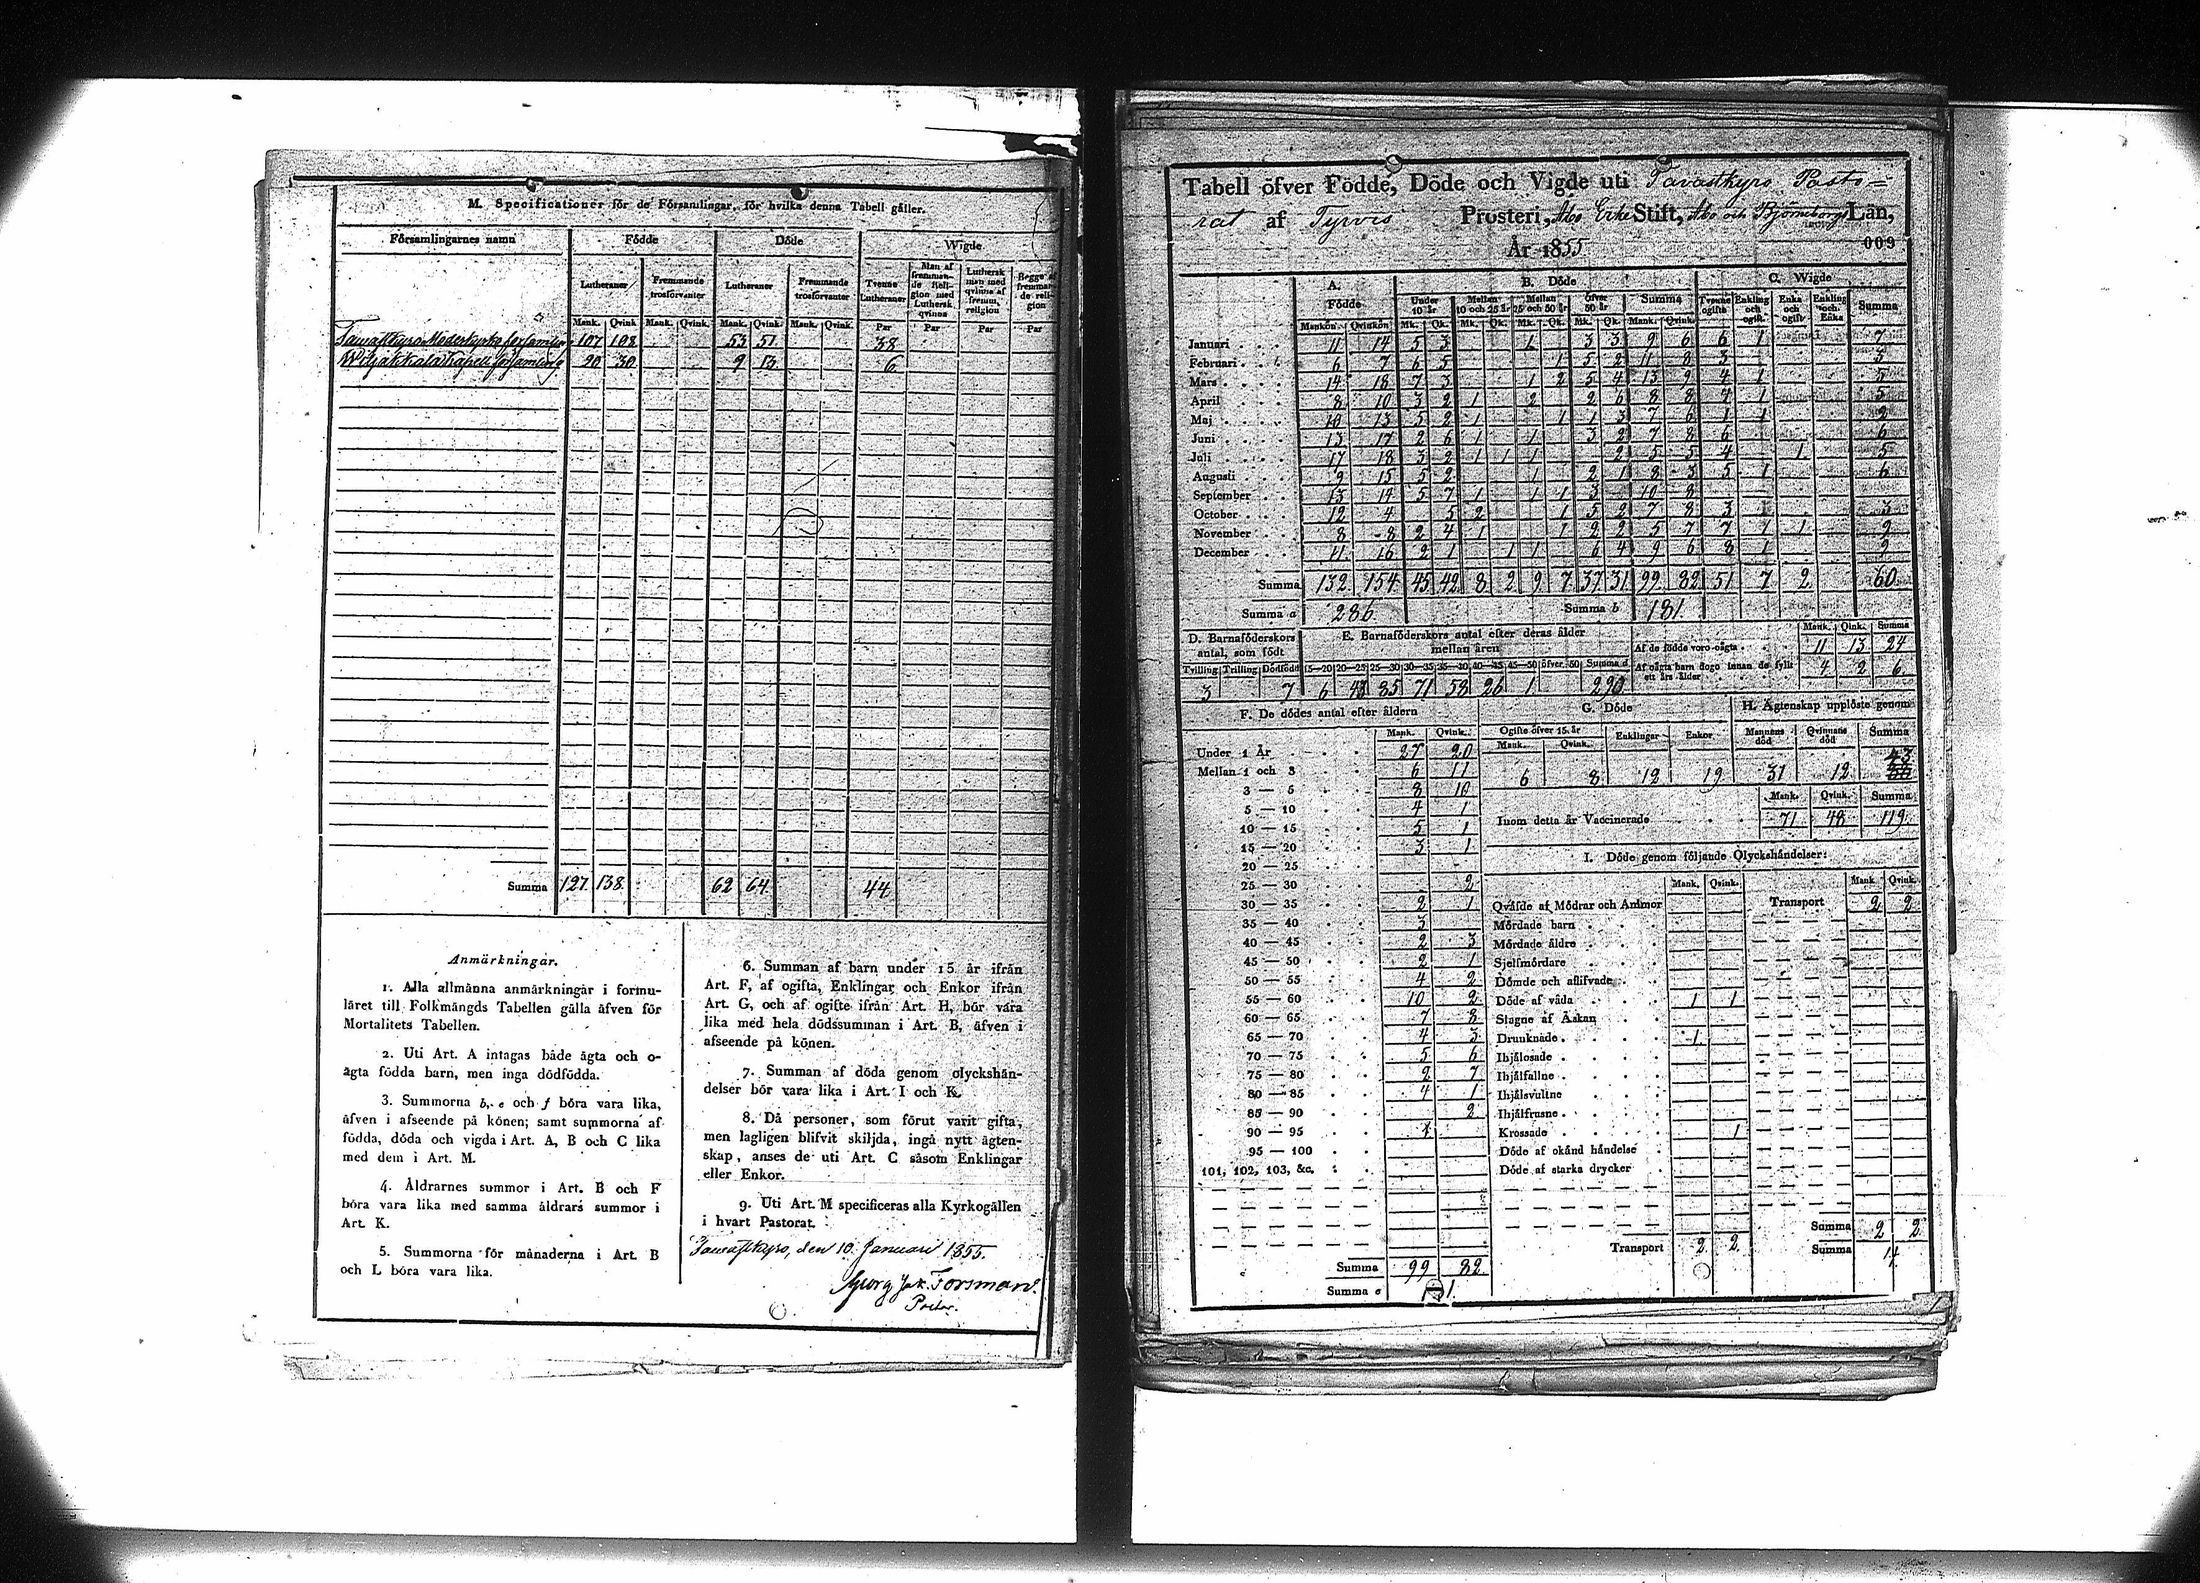 M. Specificationer för de Församlingar, för hvilka denna Tabell gäller.
Församlingarnes namn Födde Döde Wigde
Lutheraner Fremmande trosförvanter Lutheraner Fremmande trosförvanter Tvenne Lutheraner Man af fremmande Religion med Luthersk qvinna Luthersk man med qvinna af fremm. religion Begge af fremmande religion
Mank. Qvink Mank. Qvink. Mank. Qvink. Mank. Qvink. Par Par Par Par
Tawastkyro Moderkyrko församling 107 108 53 51 38
Wiljakkala Kapell församling 20 30 9 13 6
Summa 127 138 62 64 44
Anmärkningar.
1. Alla allmänna anmärkningar i formu-
läret till Folkmängds Tabellen gälla äfven för
Mortalitets Tabellen.
2. Uti Art. A intagas både ägta och o-
ägta födda barn, men inga dödfödda.
3. Summorna b, e och f böra vara lika,
äfven i afseende på könen; samt summorna af
födda, döda och vigda i Art. A, B och C lika
med dem i Art. M.
4. Åldrarnes summor i Art. B och F
böra vara lika med samma åldrars summor i
Art. K.
5. Summorna för månaderna i Art. B
och L böra vara lika.
6. Summan af barn under 15 år ifrån
Art. F, af ogifta, Enklingar och Enkor ifrån
Art. G, och af ogifte ifrån Art. H, bör vara
lika med hela dödssumman i Art. B, äfven i
afseende på könen.
7. Summan af döda genom olyckshän-
delser bör vara lika i Art. I och K.
8. Då personer, som förut varit gifta,
men lagligen blifvit skiljda, ingå nytt ägten-
skap, anses de uti Art. C såsom Enklingar
eller Enkor.
9. Uti Art. M specificeras alla Kyrkogällen
i hvart Pastorat.
Tawastkyro, den 10 Januari 1855.
Georg Jak. Forsman
Tabell öfver Födde, Döde och Vigde uti Tavastkyro Pasto=
rat af Tyrvis Prosteri, Åbo Erke Stift, Åbo och Björneborgs Län,
År 1855
009
A. Födde B. Döde C. Wigde
Under 10 år Mellan 10 och 25 år Mellan 25 och 50 år öfver 50 år Summa Tvenne ogifte Enkling och ogift Enka och ogift Enkling och Enka Summa
Mankön Qvinkön Mk. Qk. Mk. Qk. Mk. Qk. Mk. Qk. Mank. Qvink.
Januari 11 14 5 3 1 3 3 9 6 6 1 7
Februari 6 7 6 5 1 5 2 11 8 3 3
Mars 14 18 7 3 1 2 5 4 13 9 4 1 5
April 8 10 3 2 1 2 2 6 8 8
Maj 10 13 5 2 1 1 1 3 7 6 1 1 2
Juni 13 17 2 6 1 1 3 2 7 8 6 6
Juli 17 18 3 2 1 1 1 2 5 5 4 1 5
Augusti 9 15 5 2 1 2 1 8 3 5 1 6
September 13 14 5 7 1 1 1 3 10 8
October 12 4 5 2 1 5 2 7 8 3
November 8 8 2 4 1 1 2 2 5 7 7 1 1 9
December 11 16 2 1 1 1 6 4 9 6 8 1 9
Summa 132 154 45 42 8 2 9 7 37 31 99 82 51 7 2 60
Summa a 286. Summa b 181.
D. Barnaföderskors antal, som födt
E. Barnaföderskors antal efter deras ålder mellan åren
Tvilling Trilling Dödfödd 15—20 20—25 25—30 30—35 35—40 40—45 45—50 öfver 50 Summa d
3 7 6 43 85 71 58 26 1 290
Mank. Qink. Summa
Af de födde voro oägta 11 13 24
Af oägta barn dogo innan de fyllt ett års ålder 4 2 6
F. De dödes antal efter åldern
Mank. Qvink.
Under 1 År 27 20
Mellan 1 och 3 6 11
3 — 5 8 10
5 — 10 4 1
10 — 15 5 1
15 — 20 3 1
20 — 25
25 — 30 2
30 — 35 2 1
35 — 40 3
40 — 45 2 3
45 — 50 2 1
50 — 55 4 2
55 — 60 10 2
60 — 65 7 8
65 — 70 4 3
70 — 75 5 6
75 — 80 2 7
80 — 85 4 1
85 — 90 2
90 — 95 1
95 — 100
101, 102, 103, &c.
Summa 99 82
Summa e
G. Döde
Ogifte öfver 15 år Enklingar Enkor
Mank. Qvink.
6 8 12 19
H. Ägtenskap upplöste genom
Mannens död Qvinnans död Summa
31 12 43
Mank. Qvink. Summa
Inom detta år Vaccinerade 71 48 119
I. Döde genom följande Olyckshändelser:
Mank. Qvink. Mank. Qvink.
Qväfde af Mödrar och Ammor Transport 2 2
Mördade barn
Mördade äldre
Sjelfmördare
Dömde och aflifvade
Döde af våda 1 1
Slagne af Åskan
Drunknade 1
Ihjälosade
Ihjälfallne
Ihjälsvultne
Ihjälfrusne
Krossade 1
Döde af okänd händelse
Döde af starka drycker
Summa 2 2
Transport 2 2 Summa 4